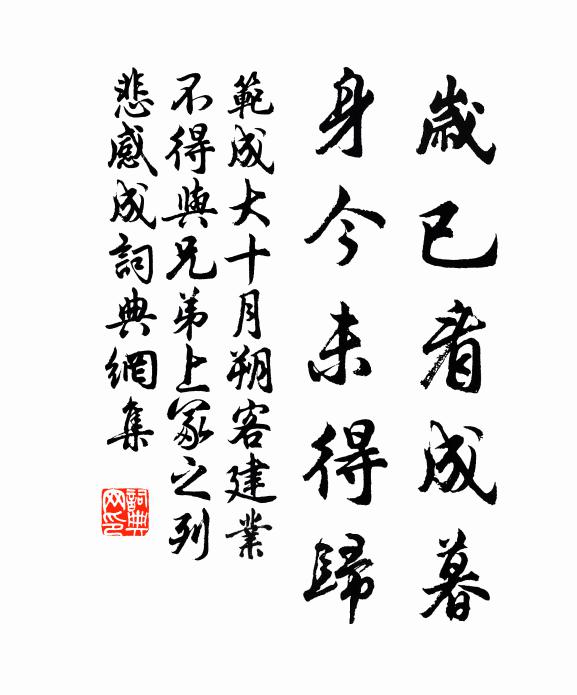 歲已看成暮
身今未得歸
範成大十月朔客建業
不得與兄弟上冢之列
悲感成詞典網集
詞典网印